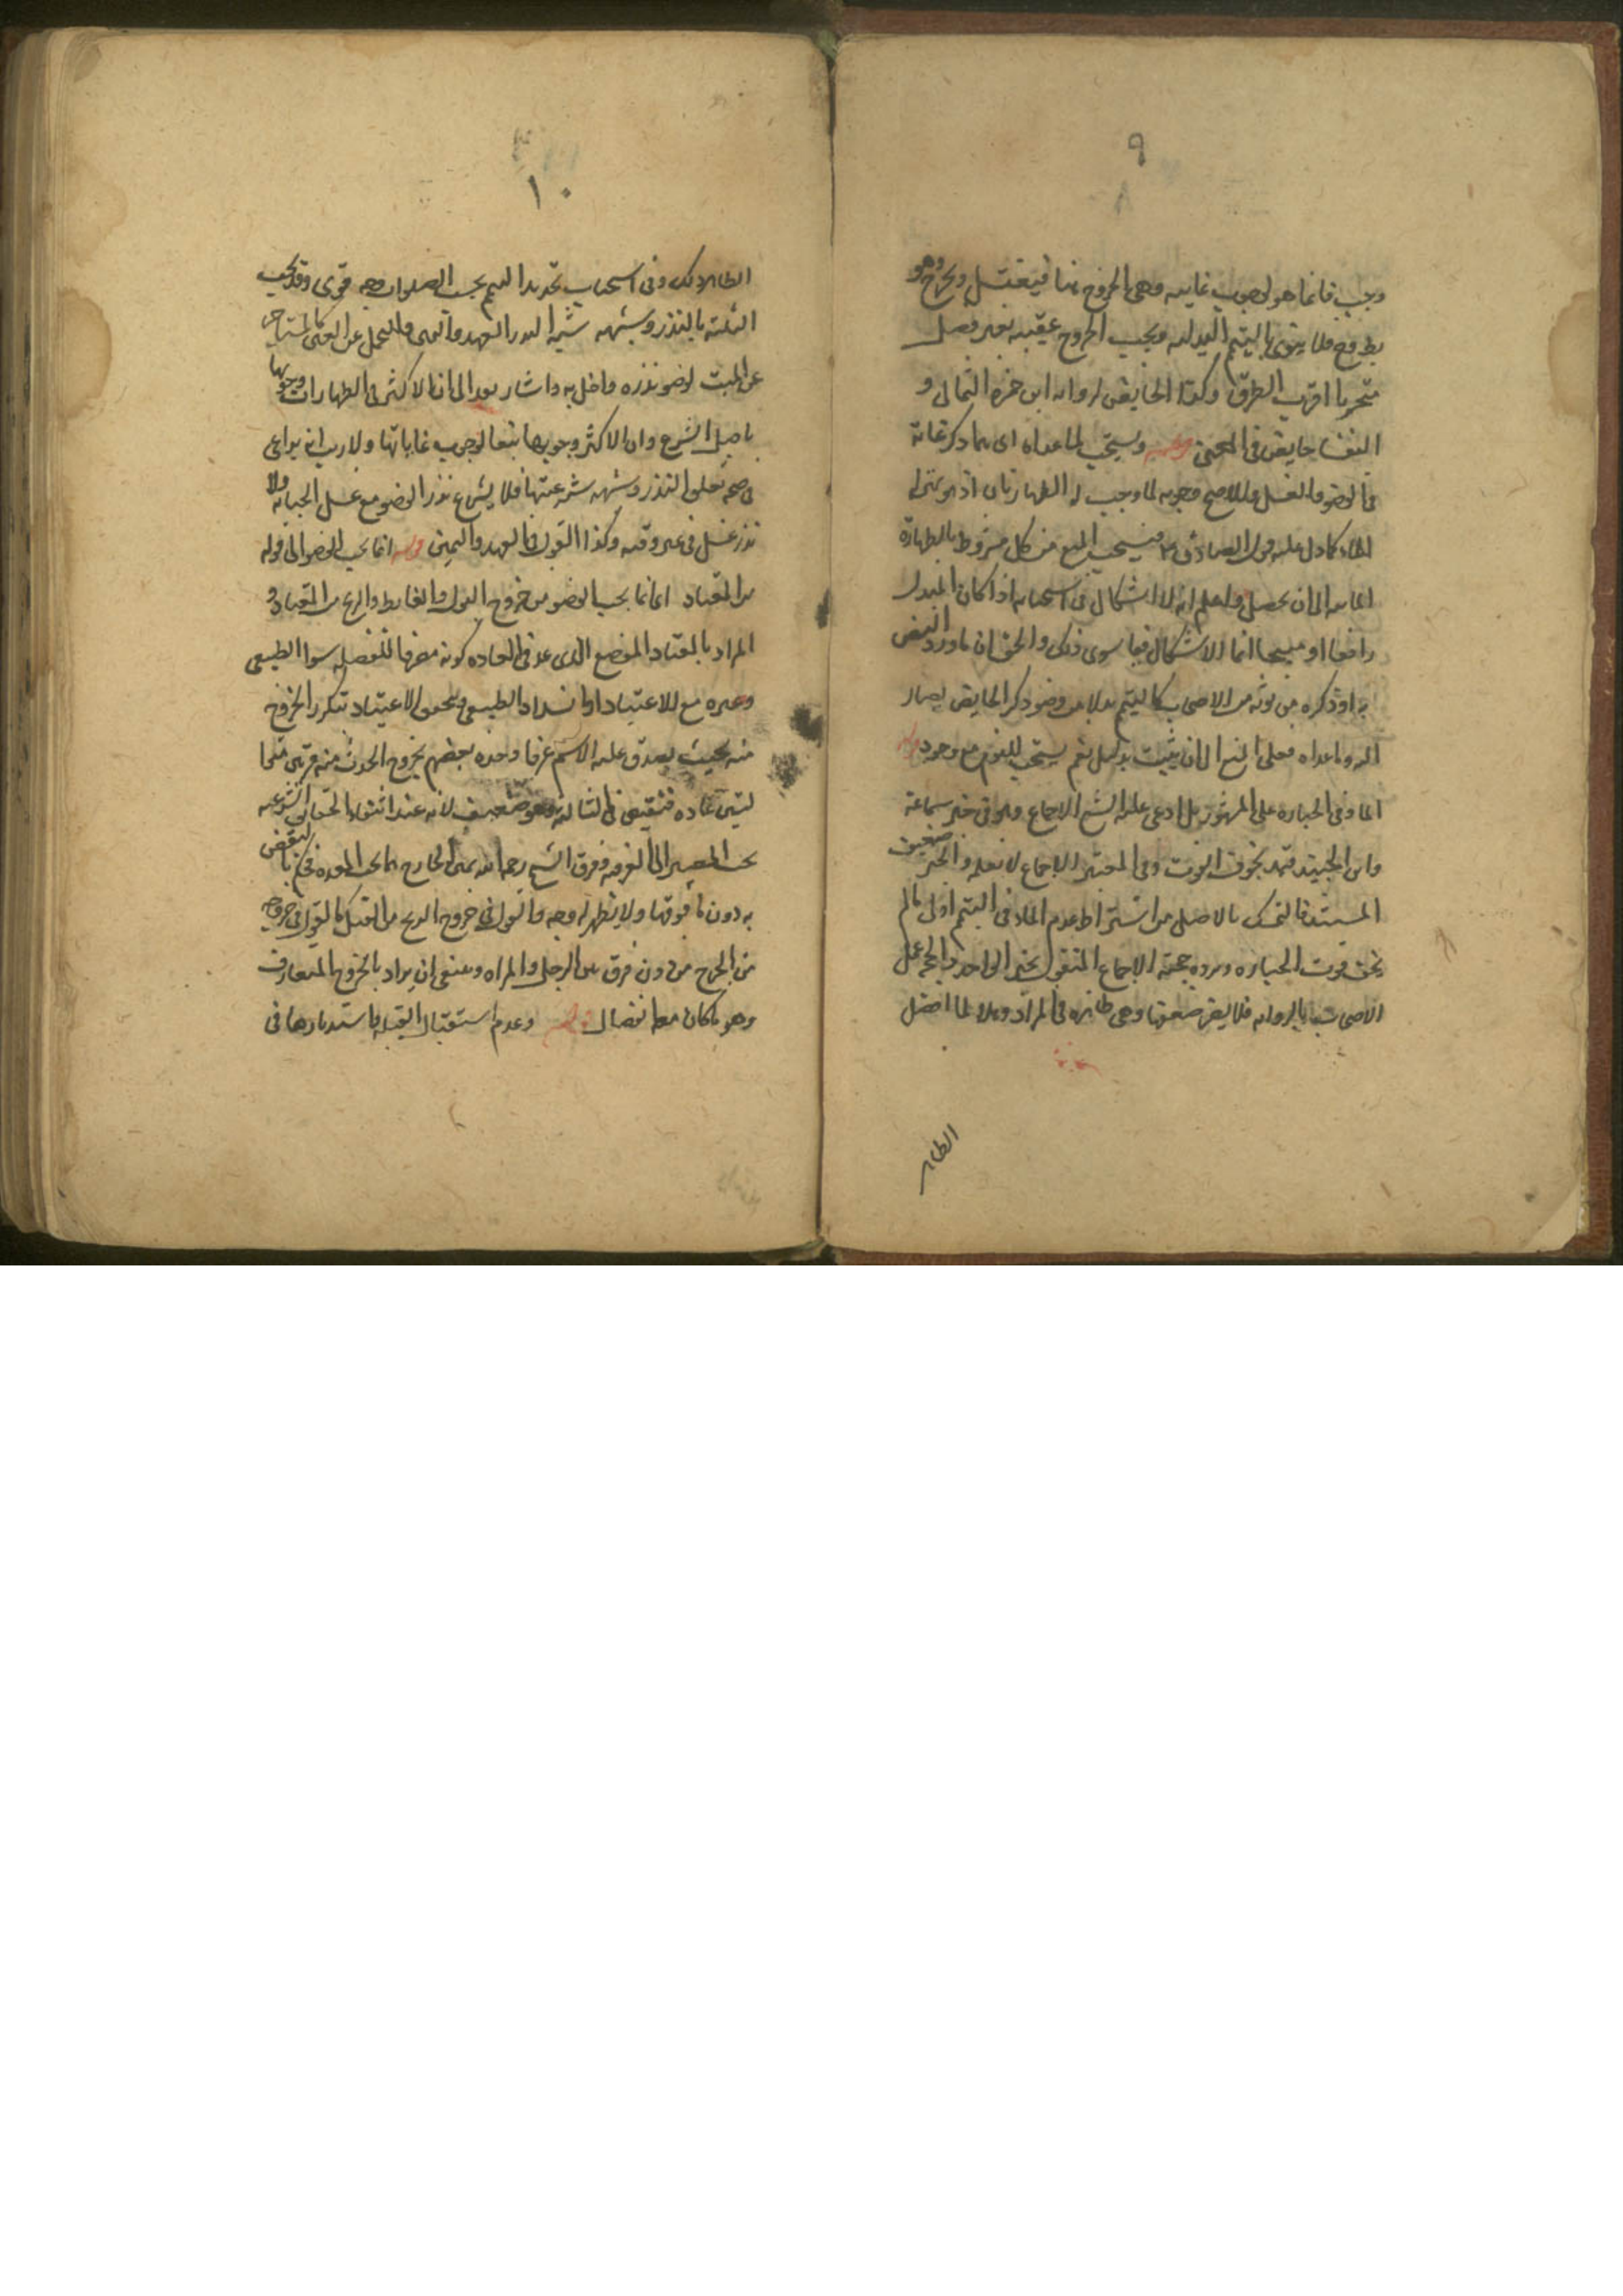 ٩
وجب فانما هو لوجوب غايته وهي الخروج منها فيغتسل ويخرج وهو
فلا ينوي بالتيمم البدلية ويجب الخروج عقيبه بغير فصل
متحريا اقرب الطرق وكذا الحايض لرواية ابن حمزه الثمالى و
النفسا حايض فى المعنى قوله ويستحب لما عداه اى بما ذكر غاية
فى الوضو والغسل والاصح وجوبه لما وجب له الطهارتان اذ هو بمنزلة
الماء كما دل عليه قول الصادق ع فيستبيح المتيمم من كل مشروط بالطهارة
الغايه الى ان يحصل واعلم انه لا اشكال فى استحبابه اذا كان المبدل
رافعا او مبيحا انما الاشكال فيما سوى ذلك والحق ان ما ورد النص
به او ذكره من يوثق به من الاصحاب كالتيمم بدلا من وضو ذكر الحايض يصار
اليه وما عداه فعلى المنع الى ان يثبت بدليل نعم يستحب للنوم مع وجود
الماء وفى الجنازه على المشهور بل ادعى عليه الشيخ الاجماع وهو فى خبر سماعة
وابن الجنيد قيد بخوف الفوت وفى المعتبر الاجماع لا نعلمه والخبر ضعيف
المستند فالتمسك بالاصل من اشتراط عدم الماء فى التيمم اولى ما لم
يخف فوت الجنازه ويرده حجية الاجماع المنقول بخبر الواحد والحجة عمل
الاصحاب بالروايه فلا يضر ضعفها وهى ظاهره فى المراد
الطهار
١٠
الطهار وفى استحباب تجديد التيمم بحسب الصلوات وجه قوى وقد يجب
الثلثه بالنذر وشبهه شبه النذر العهد واليمين والتحمل عن الغير كالمستاجر
عن الميت لوضو نذره واخل به واشار بقد الى ان الاكثر فى الطهارات وجوبها
باصل الشرع وان الاكثر وجوبها تبعا لوجوب غاياتها ولا ريب انه يراعى
فى صحة تعلق النذر وشبهه شرعيتها فلا يشرع نذر الوضو مع غسل الجنابه ولا
نذر غسل فى غير وقته وكذا القول فى العهد واليمين قوله انما يجب الوضو الى قوله
من المعتاد اى انما يجب الوضو من خروج البول والغايط والريح من المعتاد و
المراد بالمعتاد الموضع الذى عد فى العاده كونه مخرجا للفضله سوا الطبيعى
وغيره مع الاعتياد او انسداد الطبيعى ويتحقق الاعتياد بتكرر الخروج
منه بحيث يصدق عليه الاسم عرفا وحده بعضهم بخروج الحدث منه مرتين
عاده فينقض فى الثالثه وهو ضعيف لانه عند انتفاء الحقايق الشرعيه
يجب المصير الى العرفيه وفرق الشيخ رحمه الله بين الخارج مما تحت المعده فحكم بالنقض
به دون ما فوقها ولا يظهر له وجه والقول فى خروج الريح من القبل كالقول فى خروجه
من الجرح من دون فرق بين الرجل والمراه وينبغى ان يراد بالخروج المتعارف
وهو ما كان معه انفصال قوله وعدم استقبال القبله واستدبارها فى